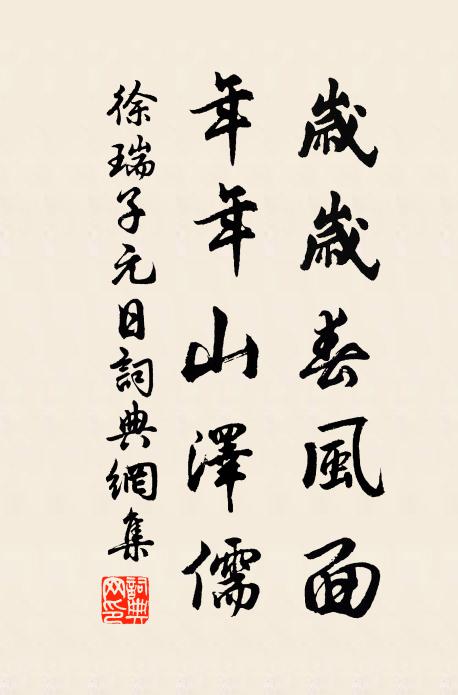 歲歲春風面
年年山澤儒
徐瑞子元日詞典網集
詞典網印